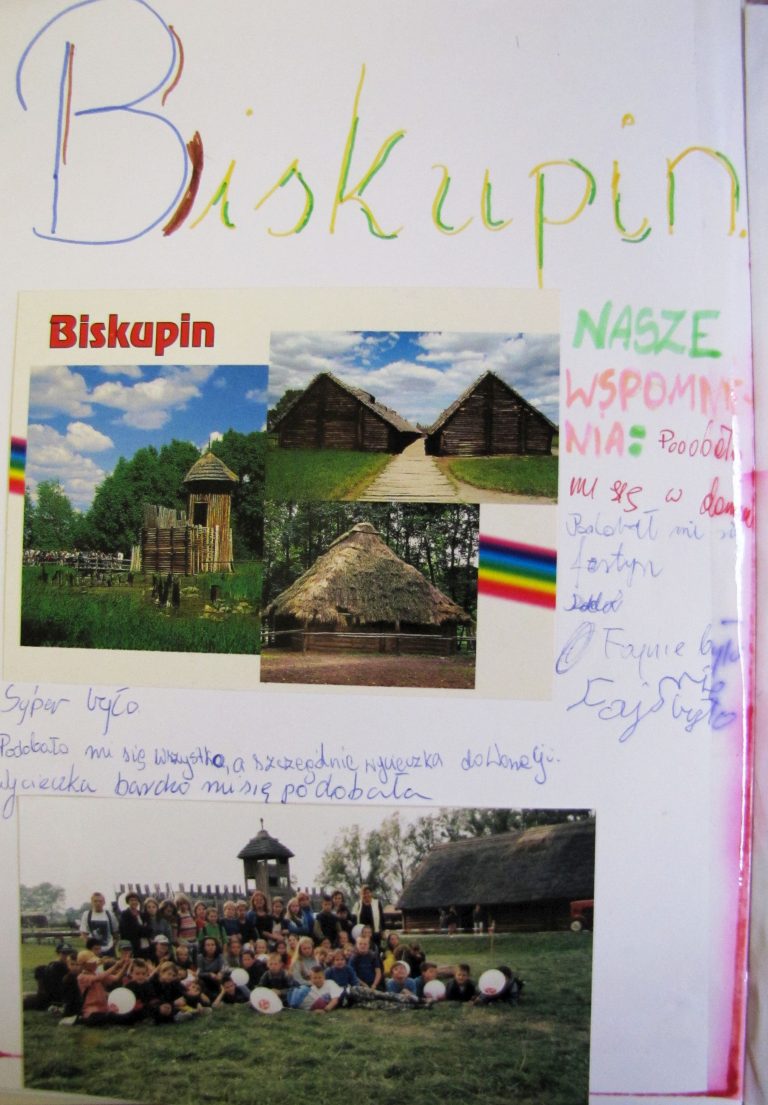 Biskupin
Biskupin
NASZE
WSPOMNIE-
NIA: Podobało
mi się w
Podobał mi się
festyn
Fajnie było
Fajnie
było
Syper było
Podobało mi się wszystko, a szczególnie wycieczka do
Wycieczka bardko mi się podobała